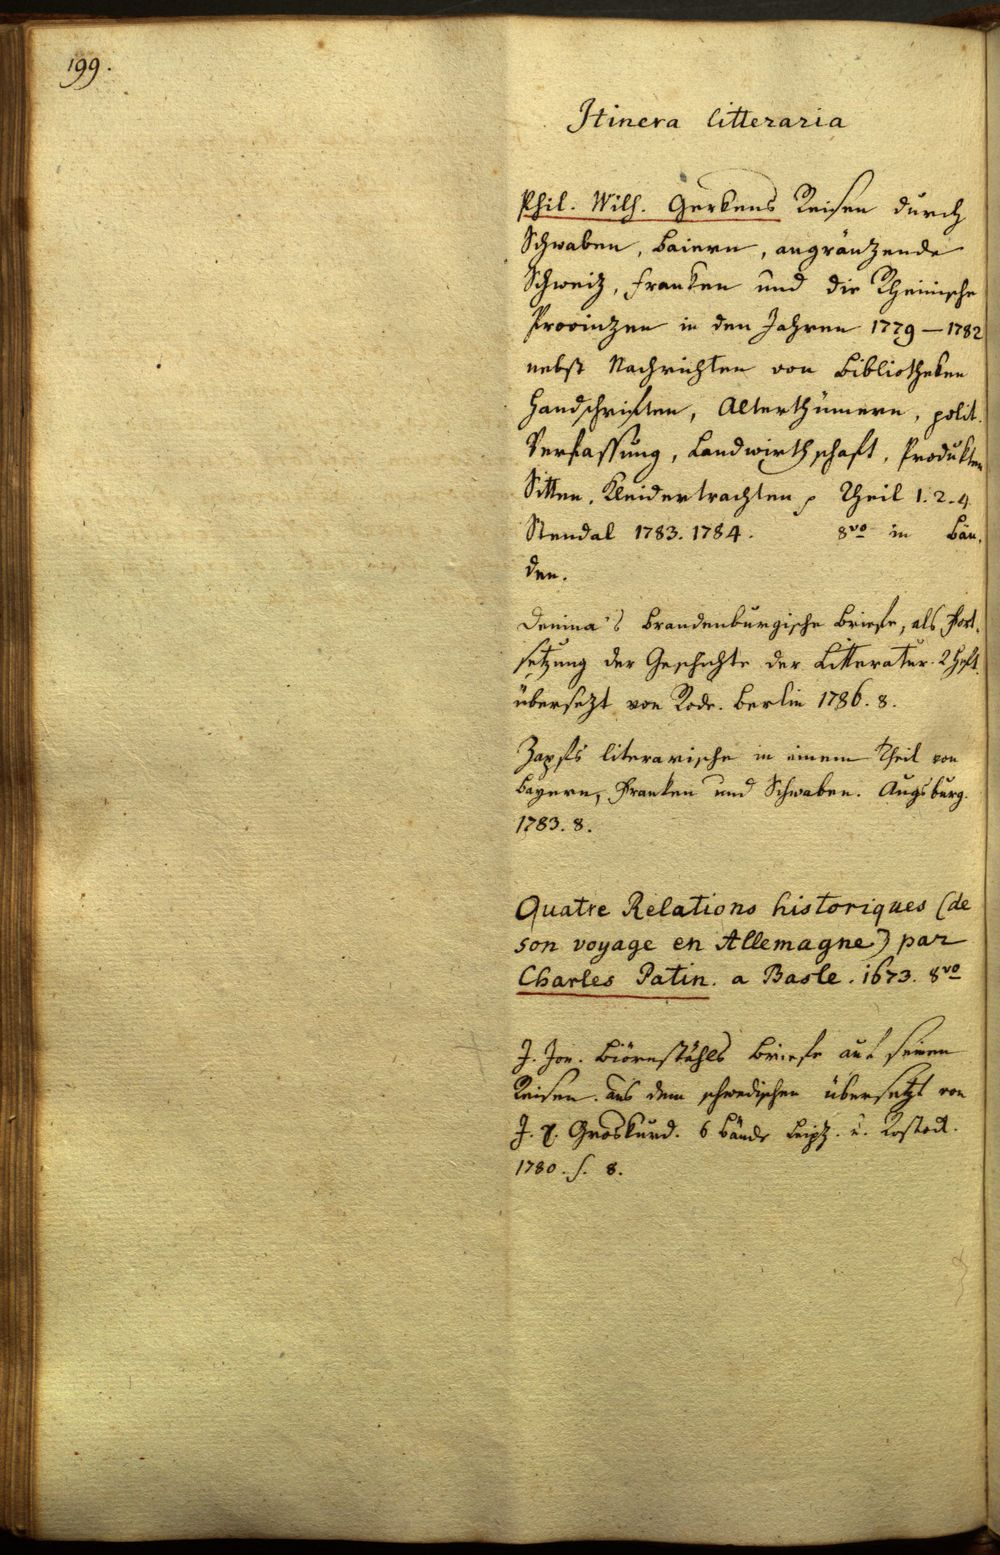 199.
Itinera litteraria
Phil. Wilh. Gerkens Reisen durch
Schwaben, Baiern, angränzende
Schweiz, Franken und die Rheinische
Provinzen in den Jahren 1779 — 1782
nebst Nachrichten von Bibliotheken
Handschriften, Alterthümern, polit.
Verfassung, Landwirthschaft, Produkten
Sitten, Kleidertrachten p Theil 1. 2. 4
Stendal 1783. 1784. 8vo in Bän,
den.
Denina's Brandenburgische Briefe, als Fort,
setzung der Geschichte der Litteratur. 2 Heft.
übersetzt von Rode. Berlin 1786. 8.
Zapfs literarische in einem Theil von
Bayern, Franken und Schwaben. Augsburg.
1783. 8.
Quatre Relations historiques (de
son voyage en Allemagne) par
Charles Patin. a Basle. 1673. 8vo
J. Jon. Biörnståhls Briefe auf seinen
Reisen. aus dem schwedischen übersetzt von
J. Groskurd. 6 Bände Leipz. u. Rostock.
1780. f. 8.